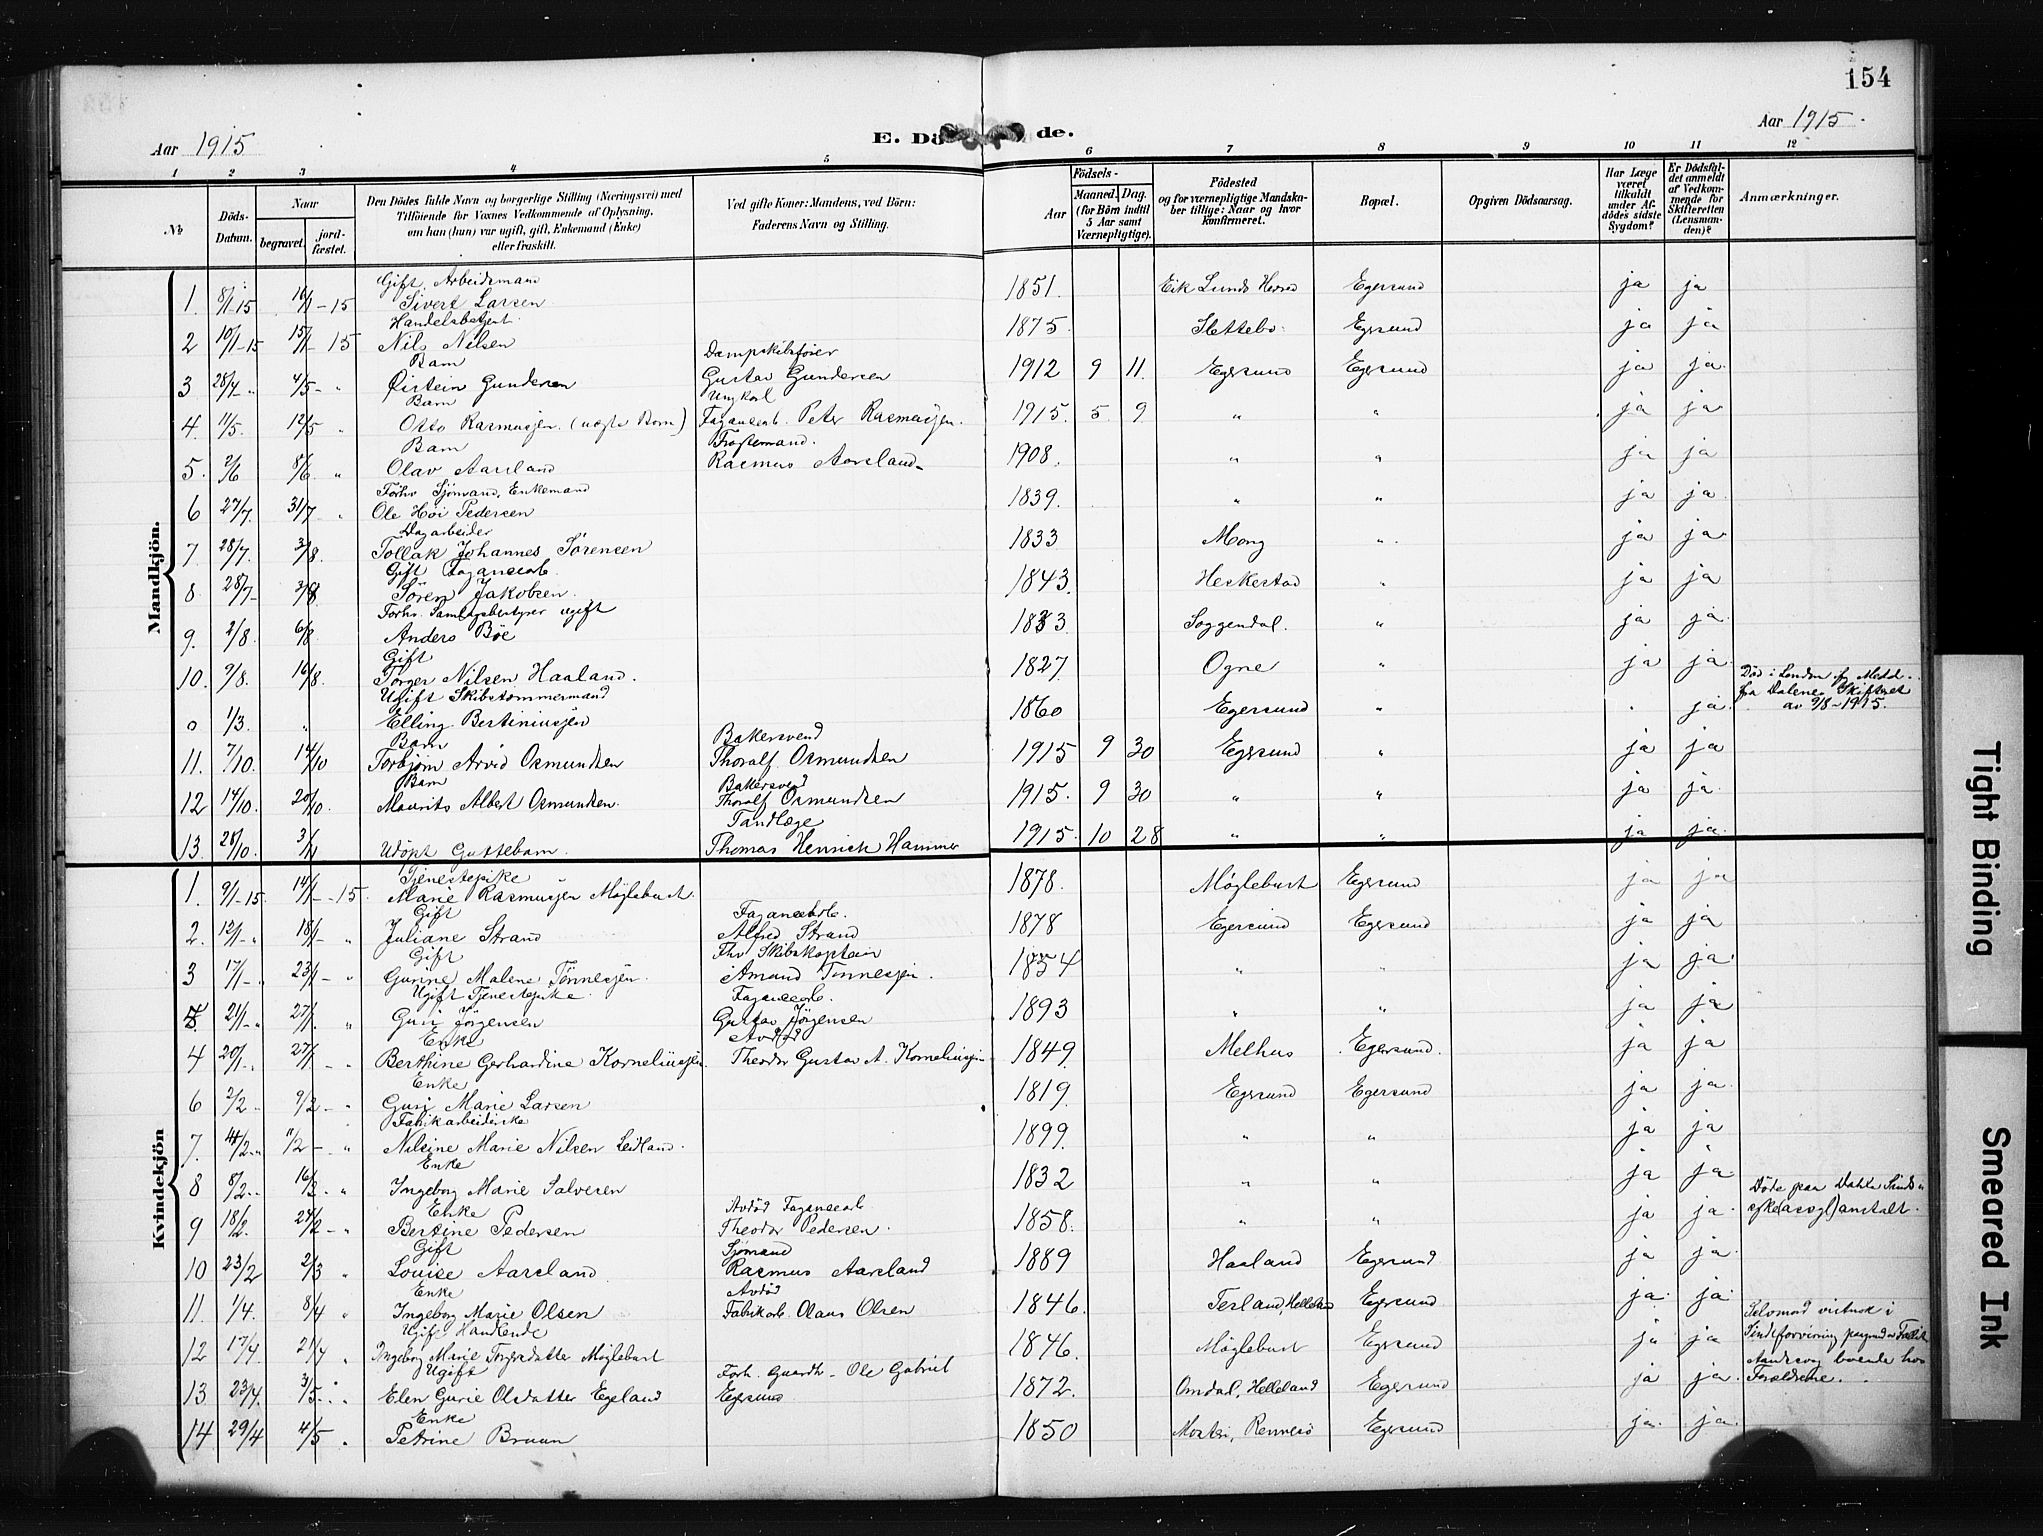 154
Aar 1915 E. Dö de. Aar 1915
1 2 3 4 5 6 7 8 9 10 11 12
No Döds-Datum. Naar begravet. jordfæstet. Den Dödes fulde Navn og borgerlige Stilling (Næringsvei) med Tilföiende for Voxnes Vedkommende af Oplysning, om han (hun) var ugift, gift, Enkemand (Enke) eller fraskilt. Ved gifte Koner: Mandens, ved Börn: Faderens Navn og Stilling. Aar Födsels- Maaned. Dag. (for Börn indtil 5 Aar samt Værnepligtige). Födested og for værnepligtige Mandskaber tillige: Naar og hvor konfirmeret. Bopæl. Opgiven Dödsaarsag. Har Læge været tilkaldt under Afdödes sidste Sygdom? Er Dödsfaldet anmeldt af Vedkommende for Skifteretten (Lensmanden)? Anmærkninger.
Mandkjön.
Gift Arbeidsmand
1. 8/1-15 16/1-15 Sivert Larsen 1851. Eik Lunds Herred Egersund ja ja
Handelsbetjent
2 10/1-15 15/1-15 Nils Nilsen 1875 Slettebø Egersund ja ja
Barn Dampskibsfører
3 28/4-" 4/5-" Øistein Gundersen Gustav Gundersen 1912 9 11. Egersund Egersund ja ja
Barn Ungkarl
4. 11/5. 12/5 " Otto Rasmussen. (uægte Barn) Fajancearb. Peter Rasmussen. 1915. 5. 9 " " ja ja
Barn
5. 2/6 8/6. " Olav Aarsland Rasmus Aarsland 1908. " " ja ja
Forhv Sjömand, Enkemand
6 27/7. 31/7 " Ole Höi Pedersen 1839. " " ja ja
Dagarbeider
7. 28/7. 3/8. Tollak Johannes Sørensen 1833 Mong " ja ja
Gift Fajancearb.
8. 28/7- 3/8 Sören Jakobsen. 1843. Heskestad " ja ja
Forhv. Samlagsbestyrer ugift
9. 2/8. 6/8 Anders Böe 1833 Soggendal. " ja ja
Gift
10. 9/8. 16/8. Torger Nilsen Haaland. 1827 Ogne " ja ja
Ugift Skibstömmermand
0 1/3. " Elling Bertiniusen 1860 Egersund " ja Död i London Meld. fra Dalene Skifteret av 9/8-1915.
Barn Bakersvend
11. 7/10. 14/10 Torbjørn Arvid Osmundsen Thoralf Osmundsen 1915 9 30 Egersund " ja ja
Barn Bakersvend
12 14/10. 20/10. Maurits Albert Osmundsen. Thoralf Osmundsen 1915. 9 30 " " ja ja
Tandlæge
13. 28/10. 3/11 Udöpt Guttebarn. Thomas Henrich Hammer 1915. 10 28 " " ja ja
Kvindekjön
Tjenestepike
1. 9/1-15. 14/1-15 Marie Rasmussen Møglebust. 1878. Møglebust Egersund ja ja
Gift Fajancearb.
2. 12/1-" 18/1-" Juliane Strand Alfred Strand 1878 Egersund Egersund ja ja
Gift Fhv Skibskaptein
3 17/1-" 23/1-" Gurine Malene Tönnesen. Amand Tønnesen. 1854 " " ja ja
Ugift Tjenestepike. Fajancearb.
21/1-" 27/1. " Guri Jörgensen Gustav Jörgensen 1893 " " ja ja
Enke Avdød
4 20/1-. 27/1. -" Berthine Gerhardine Korneliussen. Theodor Gustav A. Korneliussen 1849. Melhus Egersund. ja ja
Enke
6 2/2 -" 9/2 -" Guri Marie Larsen 1819. Egersund Egersund ja ja
Fabrikarbeiderske
7. 4/2-" 11/2 -" Nilsine Marie Nilsen Leidland. 1899. " " ja ja
Enke
8 8/2-. 16/2. " Ingeborg Marie Salvesen 1832 " " ja ja Döde paa Dahle Sindssyke(asyl)anstalt.
Enke Avdöd Fajancearb
9 18/2. 24/2 -" Bertine Pedersen Theodor Pedersen. 1858. " " ja ja
Gift Sjömand
10 23/2 2/3 " Louise Aarsland Rasmus Aarsland 1889 Haaland Egersund ja ja
Enke Avdöd
11. 1/4. 8/4 " Ingeborg Marie Olsen Fabrikarb. Olaus Olsen 1846. Terland, Helleland Egersund ja ja
Ugift Handlende
12 17/4. 21/4 " Ingeborg Marie Torgersdatter Møglebust 1846. Møglebust Egersund ja ja Selvmord i
Ugift Forh. Gaardb. Ole Gabriel
13 23/4. 3/5 " Elen Gurie Olsdatter Egeland Egersund 1872. Omdal, Helleland Egersund ja ja boende hos Forældrene.
Enke
14 29/4 4/5 " Petrine Bruun 1850 Mosterö, Rennesö Egersund ja ja
Tight Binding
Smeared Ink